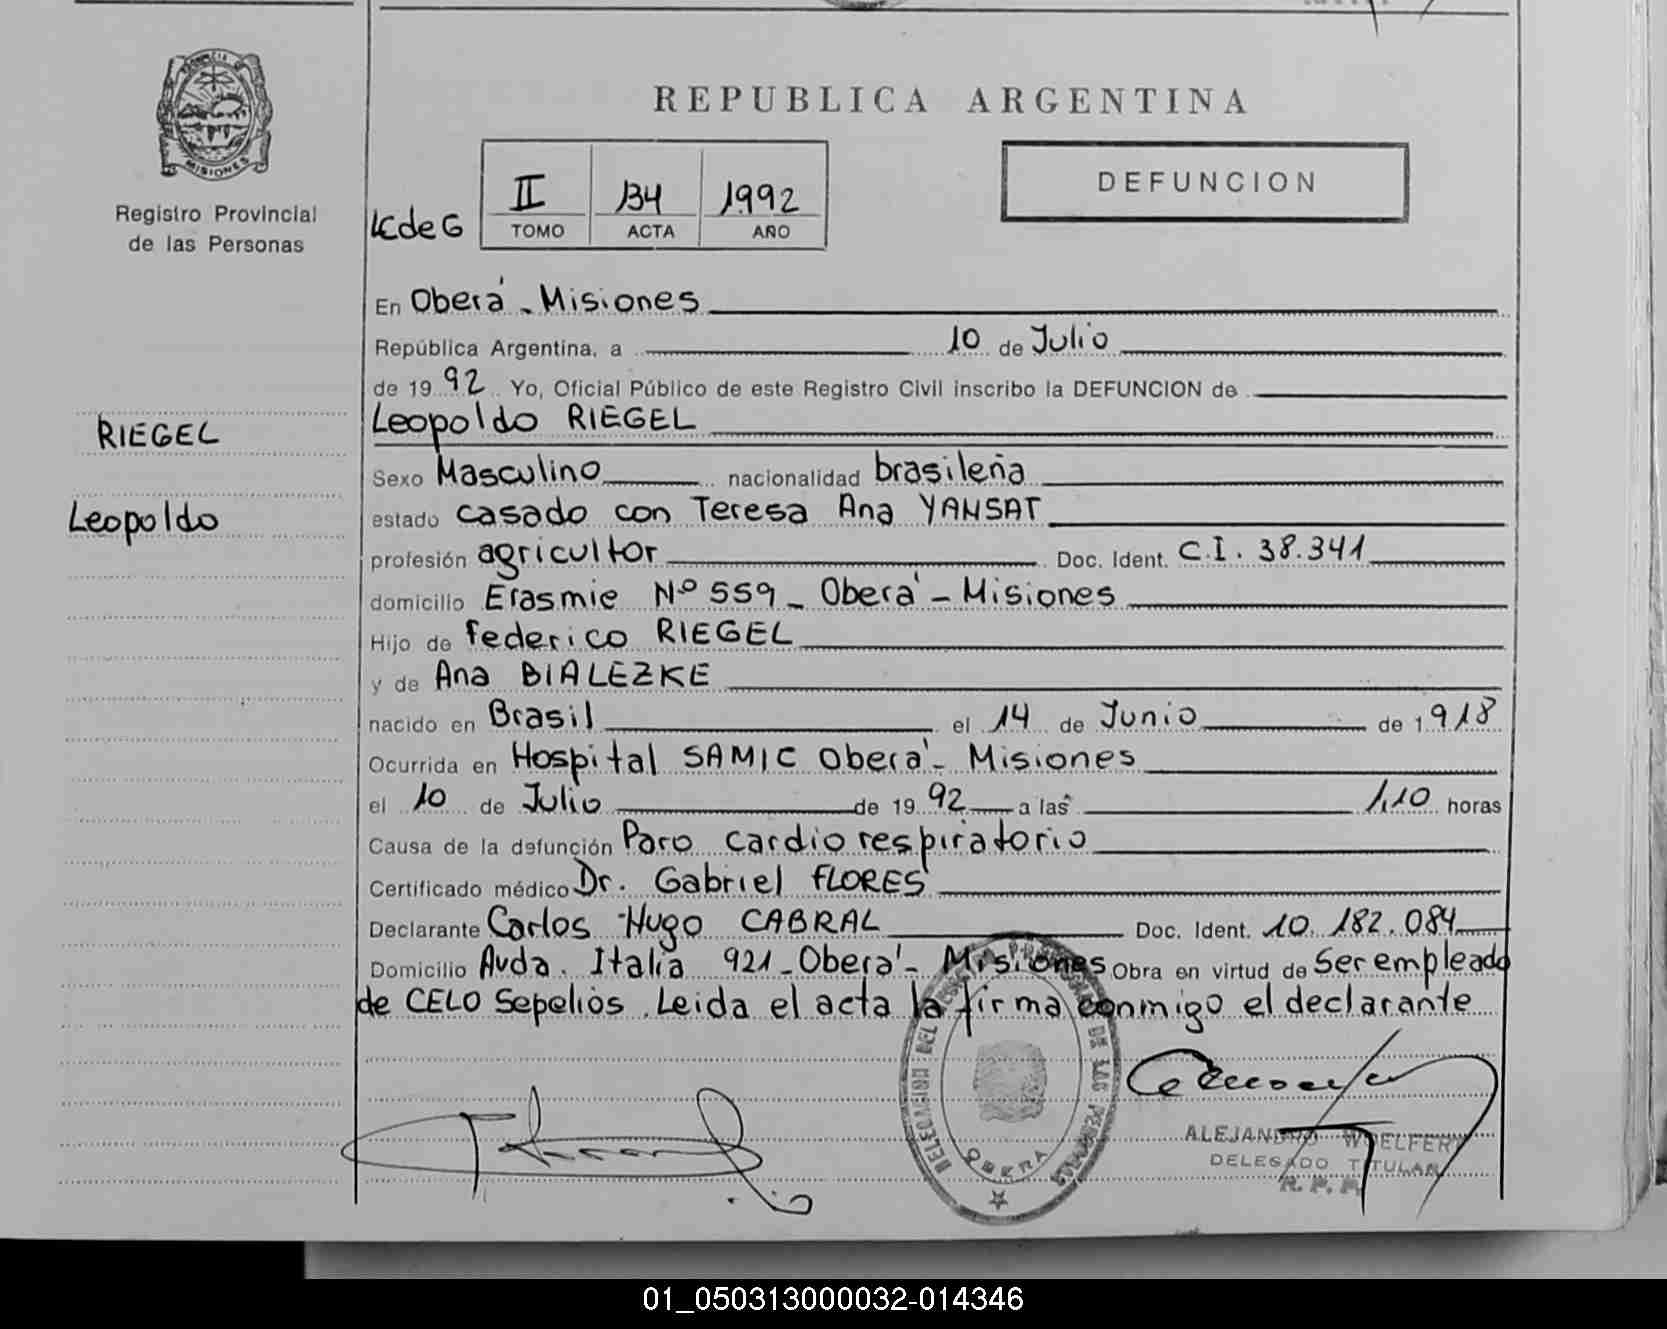 REPUBLICA ARGENTINA
MISIONES
Registro Provincial
de las Personas
II 134 1992
TOMO ACTA AÑO
DEFUNCION
En Oberá - Misiones
República Argentina, a 10 de Julio
de 19 92 Yo, Oficial Público de este Registro Civil inscribo la DEFUNCION de
RIEGEL
Leopoldo RIEGEL
Sexo Masculino nacionalidad brasileña
Leopoldo
estado casado con Teresa Ana YANSAT
profesión agricultor Doc. Ident. C.I. 38.341
domicilio Erasmie Nº 559 - Oberá - Misiones
Hijo de Federico RIEGEL
y de Ana BIALEZKE
nacido en Brasil el 14 de Junio de 1918
Ocurrida en Hospital SAMIC Oberá - Misiones
el 10 de Julio de 19 92 a las 1,10 horas
Causa de la defunción Paro cardiorespiratorio
Certificado médico Dr. Gabriel FLORES
Declarante Carlos Hugo CABRAL Doc. Ident. 10.182.084
Domicilio Avda. Italia 921 - Oberá - Misiones Obra en virtud de Ser empleado
de CELO Sepelios. Leida el acta la firma conmigo el declarante
DE LAS
OBERA
ALEJANDRO WOELFERT
DELEGADO TITULAR
R. P. P.
01_050313000032-014346